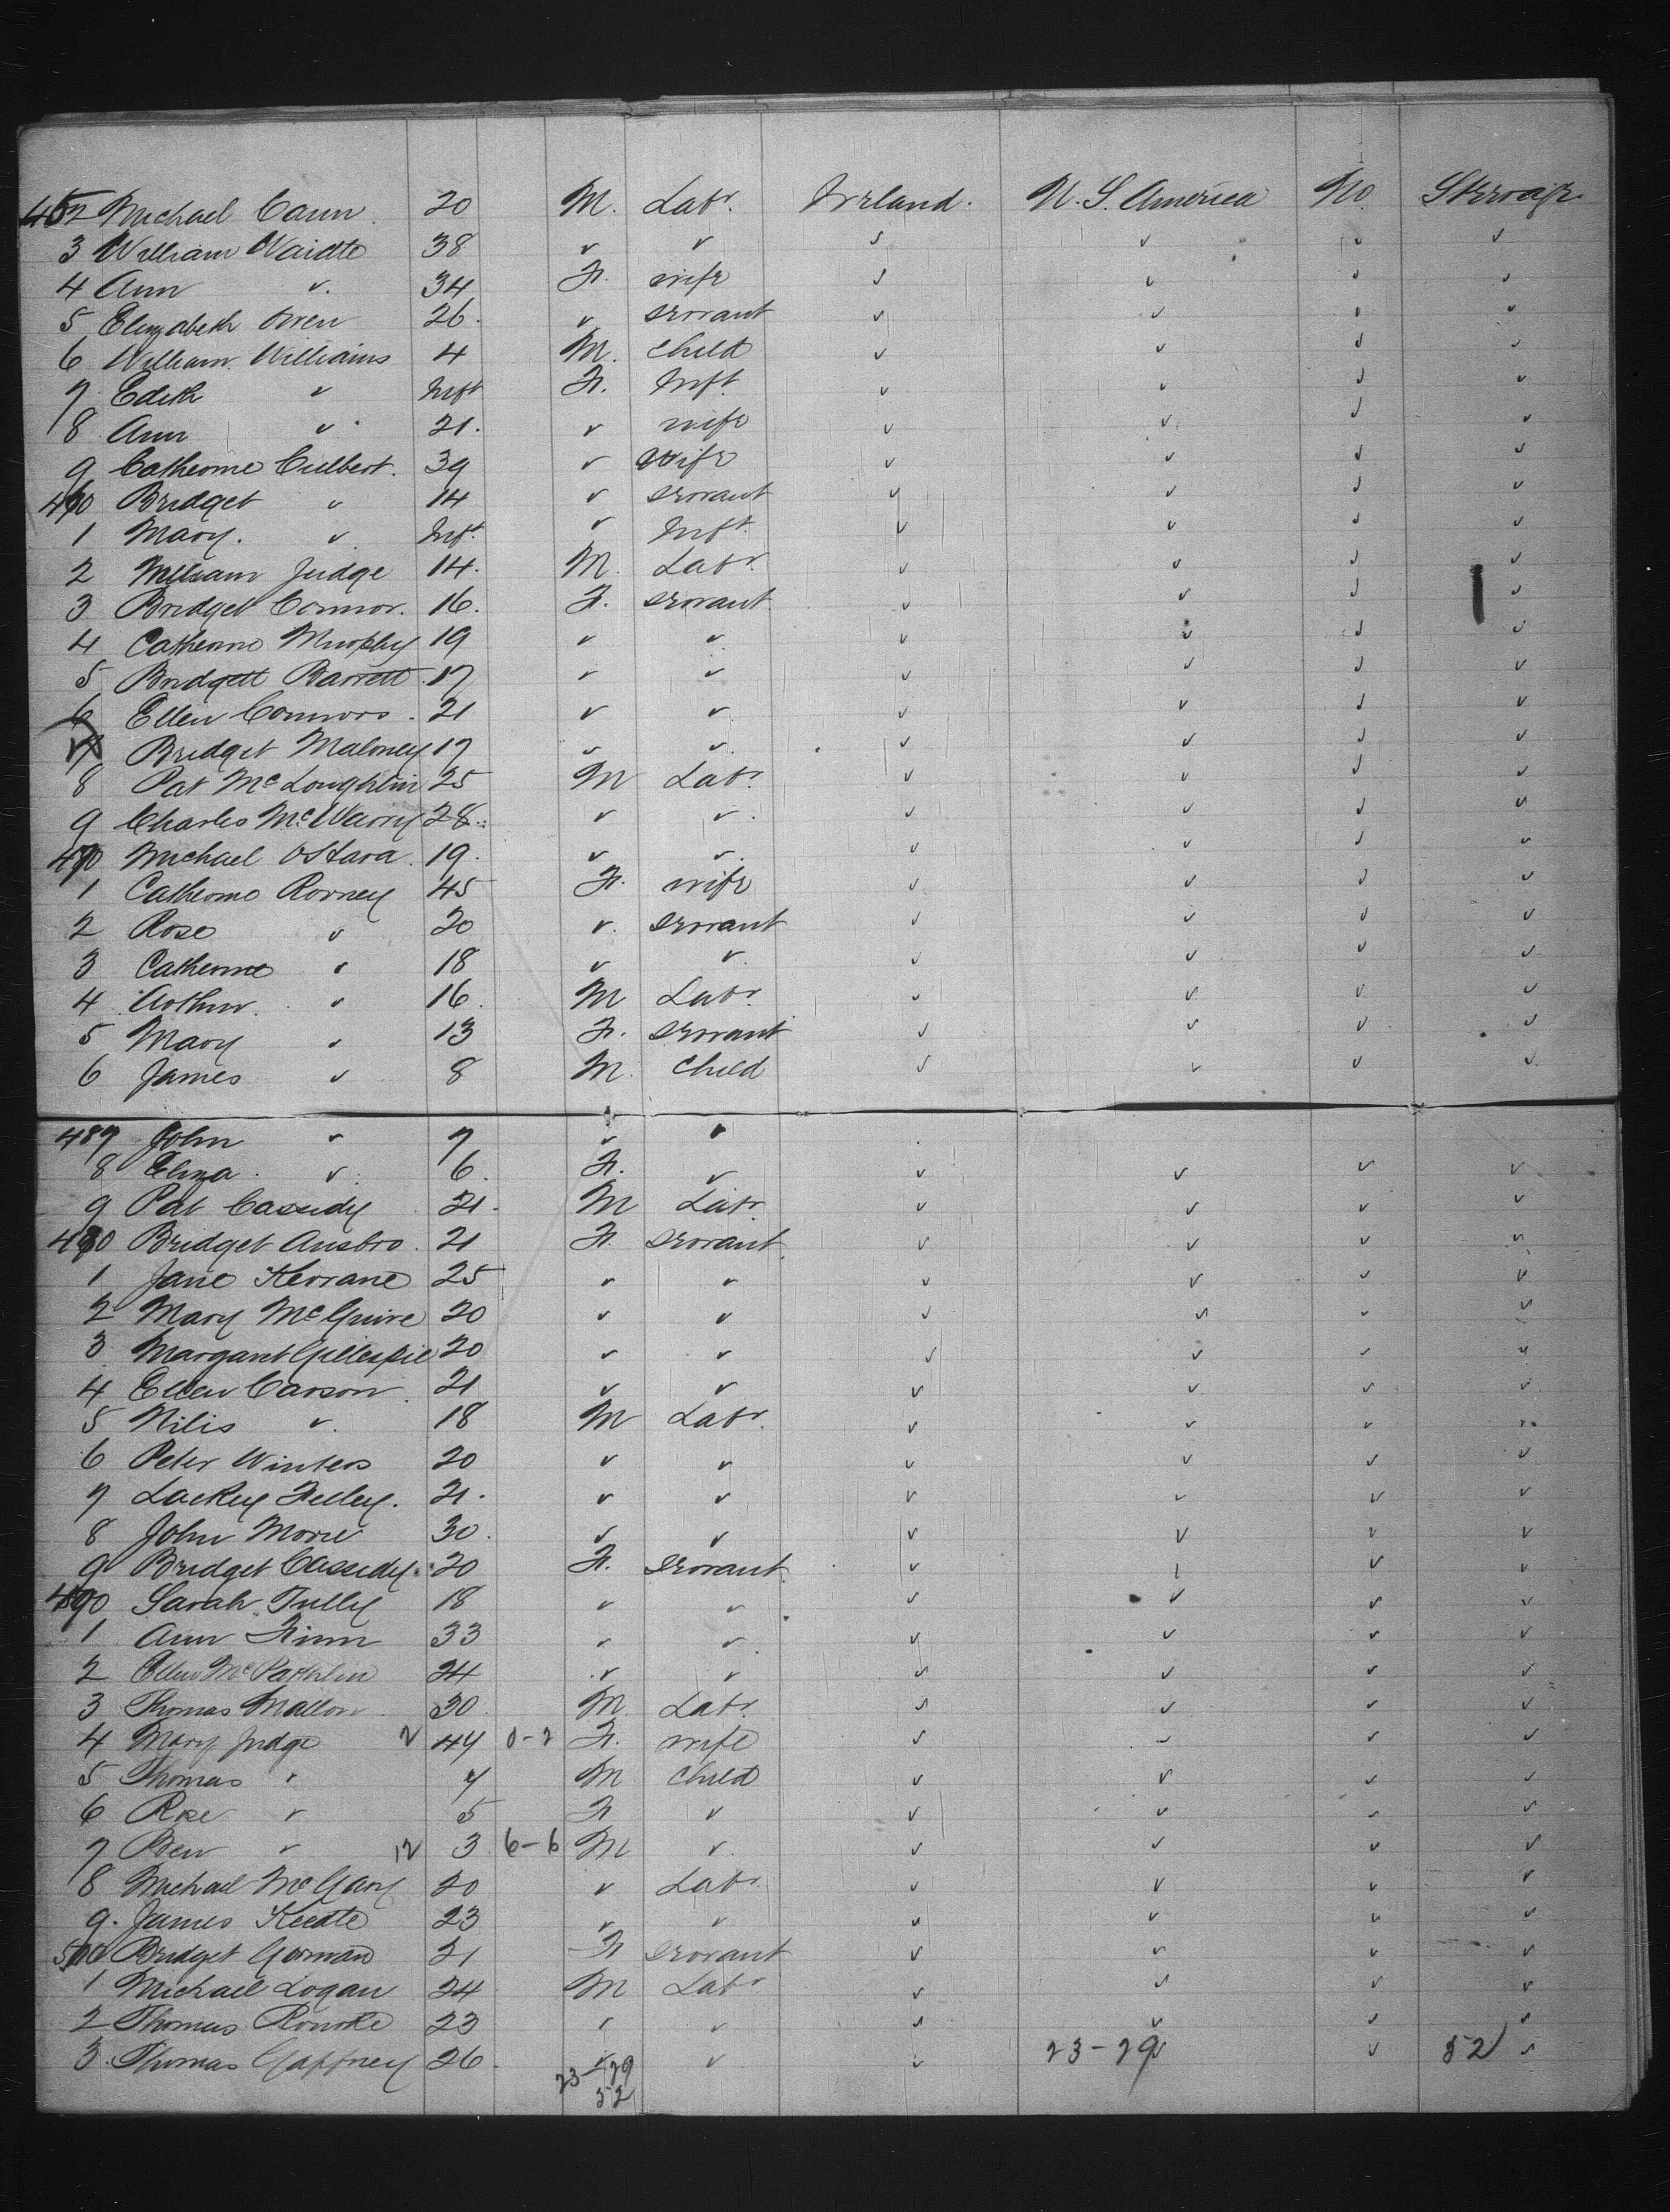 452 Michael Cann. 20 M. Labr. Ireland. U.S. America No. Steerage
3 William Waidte 38 " " " " " "
4 Ann " 34 F. wife " " " "
5 Elizabeth Owen 26. " servant " " " "
6 William Williams 4 M. Child " " " "
7 Edith " Inft F. Inft. " " " "
8 Ann " 21. " wife " " " "
9 Catherine Culbert. 39 " Wife " " " "
460 Bridget " 14 " servant " " " "
1 Mary. " Inft. " Inft. " " " "
2 William Judge 14. M. Labr. " " " "
3 Bridget Connor. 16. F. servant " " " "
4 Catherine Murphy 19 " " " " " "
5 Bridgett Barrett 17 " " " " " "
6 Ellen Connors. 21 " " " " " "
7 Bridget Maloney 17 " " " " " "
8 Pat McLoughlin 25 M Labr. " " " "
9 Charles 28 " " " " " "
470 Michael OHara. 19. " " " " " "
1 Catherine Rooney 45 F. wife " " " "
2 Rose " 20 " servant " " " "
3 Catherine " 18 " " " " " "
4 Arthur. " 16. M Labr. " " " "
5 Mary " 13 F. servant " " " "
6 James " 8 M. Child " " " "
487 John " 7 " "
8 Eliza. " 6. F. " " " " "
9 Pat Cassidy 21. M Labr. " " " "
480 Bridget Ansbro. 21 F. servant " " " "
1 Jane Kerrane 25 " " " " " "
2 Mary McGuire 20 " " " " " "
3 Margaret Gillespie 20 " " " " " "
4 Ellen Carson. 21 " " " " " "
5 Nilis " 18 M Labr. " " " "
6 Peter Winters 20 " " " " " "
7 Lackey Felley. 21. " " " " " "
8 John 30. " " " " " "
9 Bridget Cassidy. 20 F. servant " " " "
490 Sarah Tully 18 " " " " " "
1 Ann Finn 33 " " " " " "
2 Ellen 24 " " " " " "
3 Thomas Mallon 30 M. Labr. " " " "
4 Mary Judge 2 44 0-2 F. wife " " " "
5 Thomas " 7 M Child " " " "
6 Rose " 5 F " " " " "
7 Ben " 12 3 6-6 M " " " " "
8 Michael McGary 20 " Labr. " " " "
9. James Keedte 23 " " " " " "
500 Bridget Gorman 21 F servant " " " "
1 Michael Logan 24 M Labr " " " "
2 Thomas Rourke 23 " " " " " "
3. Thomas Gaffney 26. " " " 23-29 " 52 "
23-29
52